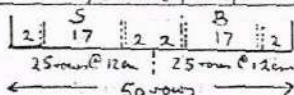 S B
2 17 2 2 17 2
25 rows @ 12cm 25 rows @ 12cm
50 rows